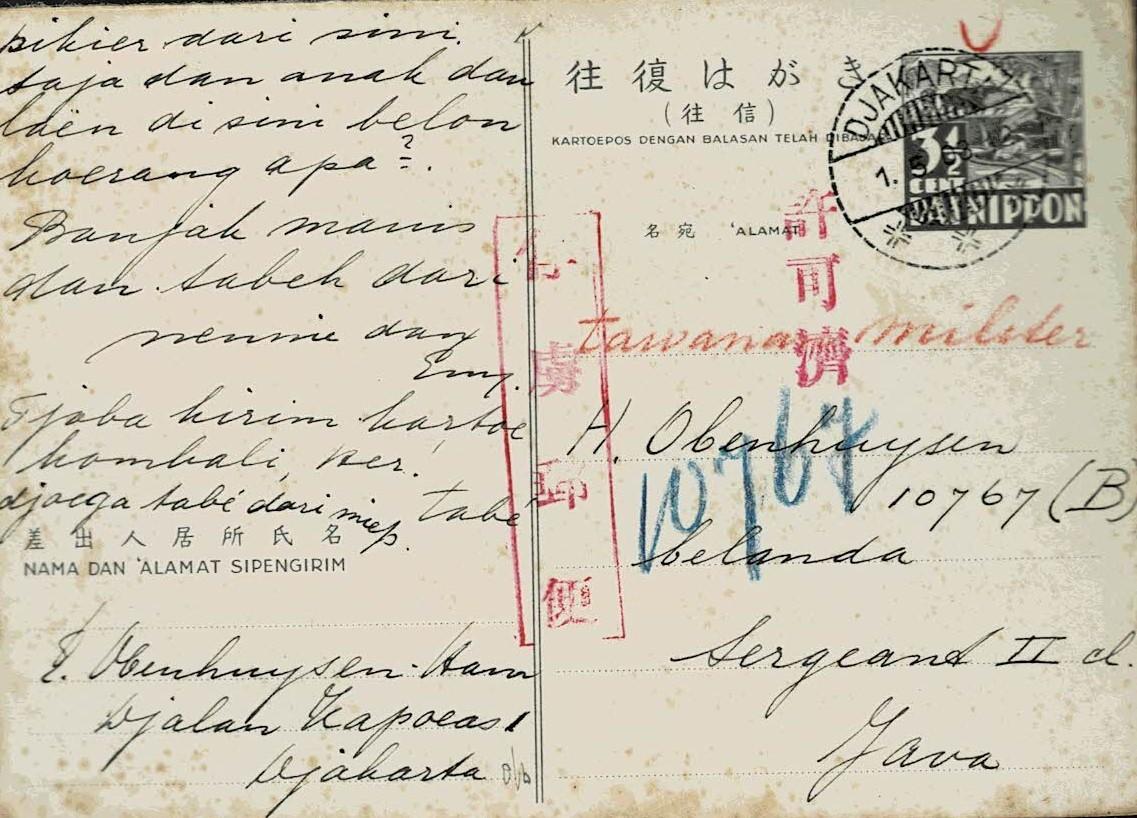 pikier dari sini.
saja dan anak dan
laën di sini belon
koerang apa?.
Banjak manis
dan tabeh dari
nennie dan
Emy.
Tjoba kirim kartoe
kombali, ker!
djoega tabé dari miep. tabé
差出人居所氏名
NAMA DAN 'ALAMAT SIPENGIRIM
E. Obenhuysen-Ham
Djalan Kapoeas 1
Djakarta
往復はがき
(往信)
KARTOEPOS DENGAN BALASAN TELAH DIBAJAR
DJAKARTA
1. 5
3½
CENT
DAI NIPPON
名宛 'ALAMAT
許可濟
俘虜郵便
tawanan militer
H. Obenhuysen
10767
10767 (B)
belanda
Sergeant II cl.
Java